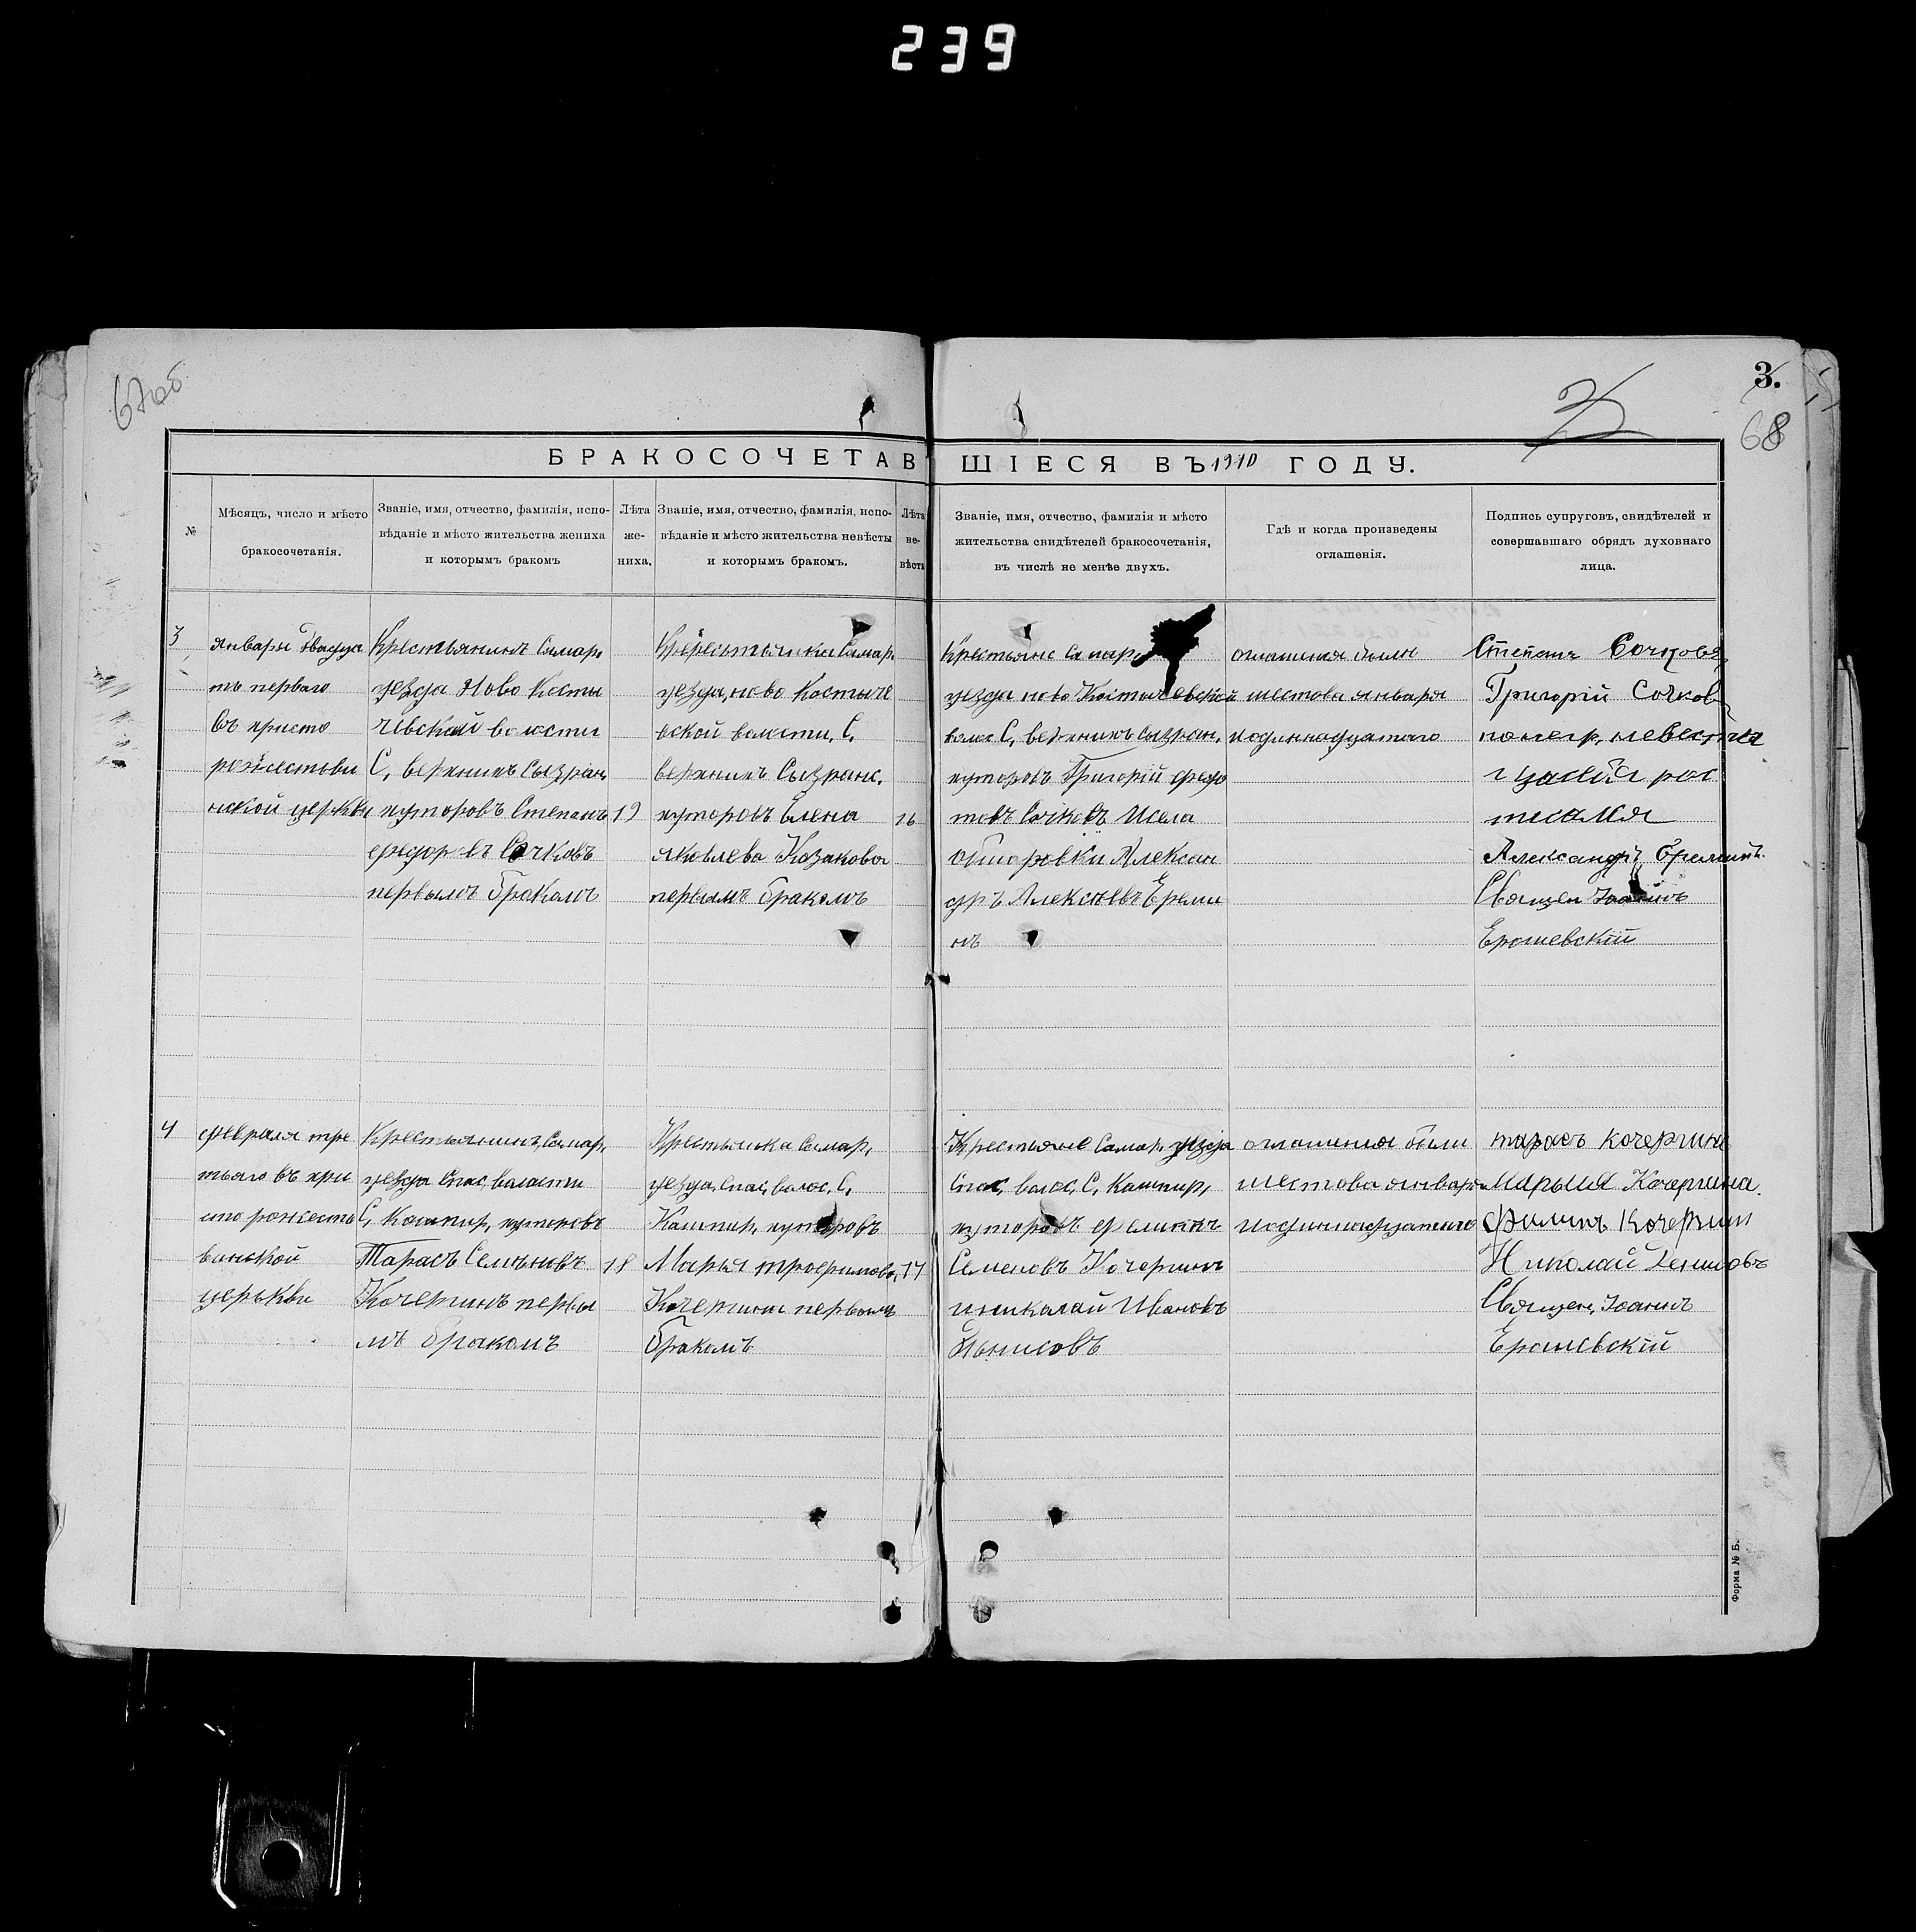 239
67об
3.
3
68
БРАКОСОЧЕТАВШІЕСЯ ВЪ 1910 ГОДУ.
№
Мѣсяцъ, число и мѣсто
бракосочетанія.
Званіе, имя, отчество, фамилія, испо-
вѣданіе и мѣсто жительства жениха
и которымъ бракомъ
Лѣта
же-
ниха.
Званіе, имя, отчество, фамилія, испо-
вѣданіе и мѣсто жительства невѣсты
и которымъ бракомъ.
Лѣта
не-
вѣсты
Званіе, имя, отчество, фамилія и мѣсто
жительства свидѣтелей бракосочетанія,
въ числѣ не менѣе двухъ.
Гдѣ и когда произведены
оглашенія.
Подпись супруговъ, свидѣтелей и
совершавшаго обрядъ духовнаго
лица.
3
января двадца
ть перваго
Въ христо
рождестви
нской церкви
Крестьянинъ Самар,
уезда Ново Косты
чевской волости
С, верхнихъ Сызран,
хуторовъ Степанъ
федоровъ Сочковъ
первымъ бракомъ
19
Крестьянка Самар,
уезда, ново Костыче
вской волости, С,
верхнихъ Сызранс,
хуторовъ Елена
яковлева Казакова
первымъ бракомъ
16
Крестьяне Самар
уезда ново Костычевской
волос С, верхнихъ Сызран,
хуторовъ Григорій федо
товъ Сочковъ Исела
Александ
ръ Алексѣевъ Ереми
нъ
оглашения были
шестова января
иодиннадцатаго
Степанъ Сочковъ
Григорій Сочков
невеста
Александръ Ереминъ.
Священ Іоаннъ
Ерошевскій
4
февраля тре
тьяго въ хри
сто рожеств
венской
церькви
Крестьянинъ, Самар,
уезда Спас, волости
С, Кашпир, хуторовъ
Тарасъ Семѣновъ
Кочергинъ первы
мъ бракомъ
18
Крестьянка Самар,
уезда, Спас, волос, С,
Кашпир, хуторовъ
Марья трофимова,
Кочергина первымъ
бракомъ
17
Крестьяне Самар, уезда
Спас, волос, С, Кашпир,
хуторовъ Филиппъ
Семеновъ Кочергинъ
иникалай Ивановъ
Дѣнисовъ
оглашения были
шестова января
иодиннадцатаго
тарасъ кочергинъ
марыя Кочергина.
Филипъ Кочергин
Николай Денисовъ
Священ, Іоаннъ
Ерошевскій
Форма № Б.